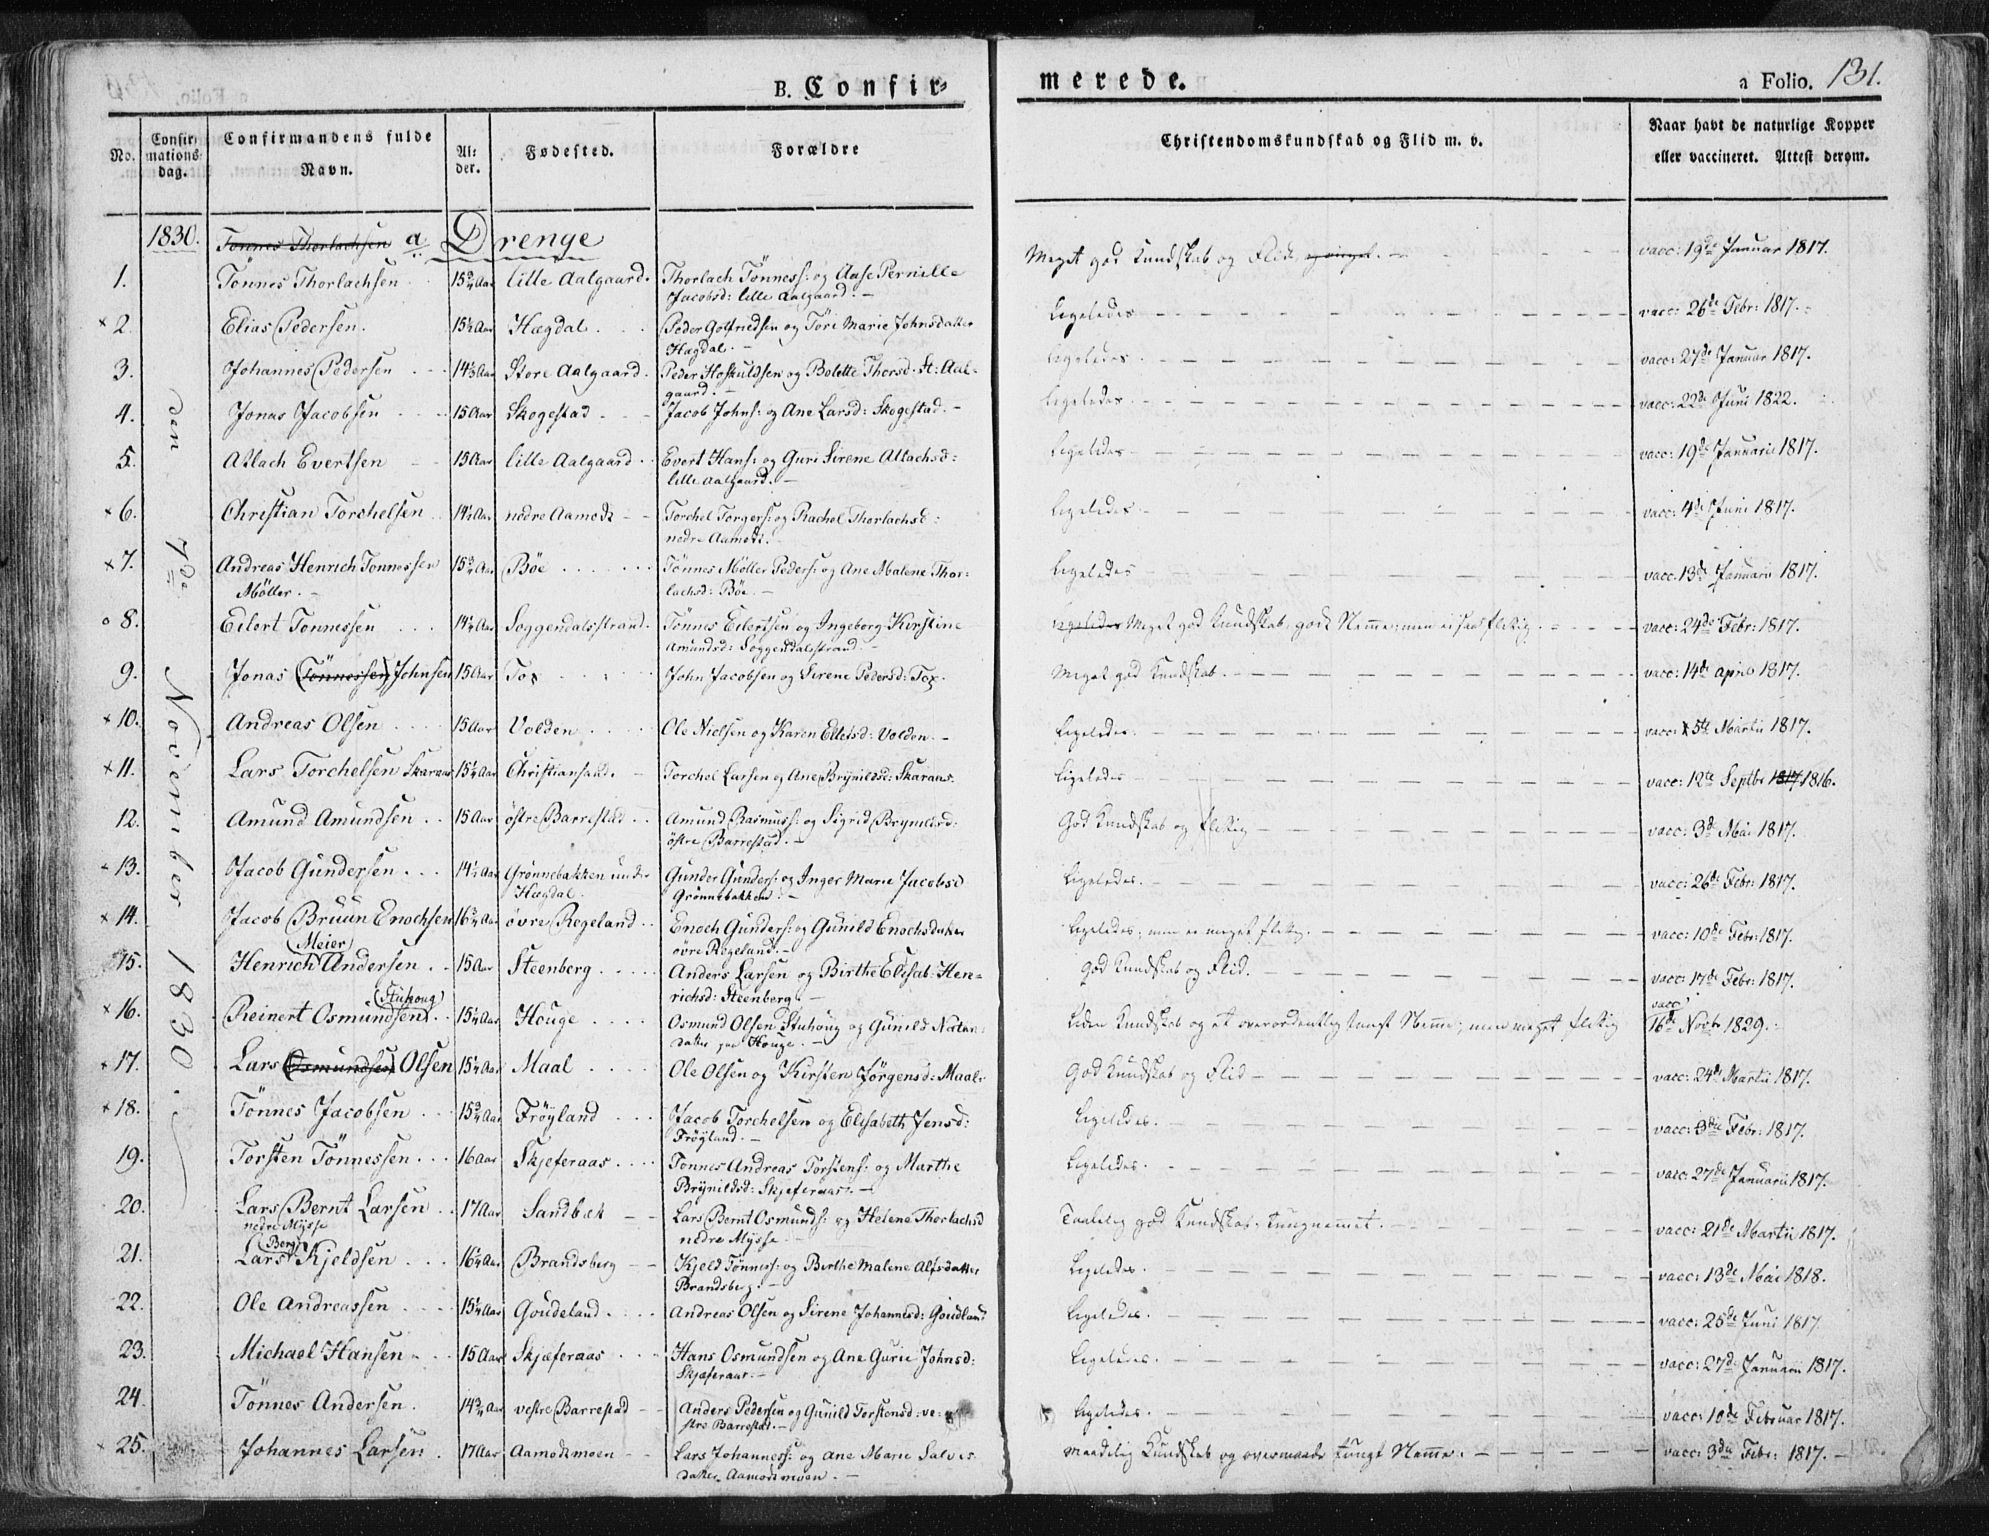 B. Confirmerede. a Folio. 131.
No. Confirmationsdag. Confirmandens fulde Navn. Alder. Fødested. Forældre Christendomskundskab og Flid m. v. Naar havt de naturlige Kopper eller vaccineret. Attest derom.
1830. Tonnes Thorlachsen a Drenge
den 7de November 1830.
1. Tönnes Thorlachsen 15 3/4 Aar lille Aalgaard. Thorlach Tønness: og Aase Pernille Meget god Kundskab og Flid vacc: 19de Januar 1817.
Jacobsd: lille Aalgaard.
× 2. Elias Pedersen. 15 1/2 Aar Hægdal. Peder Gotfriedsen og Tore Marie Johnsdatter Ligeledes vacc: 26de Febr: 1817.
Hægdal.
3. Johannes Pedersen 14 1/3 Aar Store Aalgaard. Peder Hoskuldsen og Bolette Thorsd. St: Aal- Ligeledes. vacc: 27de Januar 1817.
gaard.
4. Jonas Jacobsen 15 Aar Skogestad Jacob Johns: og Ane Larsd: Skogestad. Ligeledes. vacc: 22de Juni 1822.
5. Atlach Evertsen 15 Aar lille Aalgaard Evert Hans: og Guri Sirene Atlachsd: Ligeledes vacc: 19de Januarii 1817.
lille Aalgaard.
× 6. Christian Torchelsen 14 1/2 Aar nedre Aamodt Torchel Torgers: og Rachel Thorlachsd: Ligeledes vacc: 4de Juni 1817.
nedre Aamodt.
× 7. Andreas Henrich Tonnessen 15 3/4 Aar Böe Tönnes Møller Peders: og Ane Malene Thor- Ligeledes vacc. 13de Januarii 1817.
Möller. lachsd: Böe.
o 8. Eilert Tonnessen 14 1/4 Aar Soggendalsstrand. Tönnes Eilertsen og Ingeborg Kirstine Ligeledes Meget god Kundskab, godt Nemme; men ei saa flittig. vacc: 24de Febr: 1817.
Amundsd: Soggendalsstrand.
9. Jonas (Tönnessen) Johnsen 15 Aar Tox John Jacobsen og Sirene Pedersd: Tox. Meget god Kundskab. vacc: 14de April 1817.
× 10. Andreas Olsen 15 Aar Volden Ole Nielsen og Karen Eiletsd: Volden. Ligeledes. vacc: 5te Martii 1817.
× 11. Lars Torchelsen Skaraas 15 1/4 Aar Christiansand. Torchel Larsen og Ane Brynildsd: Skaraas. Ligeledes vacc: 12te Septbr 1817 1816.
12. Amund Amundsen 15 Aar östre Barrestad Amund Rasmuss: og Sigrid Brynildsd: God Kundskab og flittig vacc: 3de Mai 1817.
östre Barrestad.
13. Jacob Gundersen 14 1/2 Aar Grönnebakken under Gunder Gunders: og Inger Marie Jacobsd Ligeledes. vacc: 26de Febr: 1817.
Hægdal. Grönnebakken.
× 14. Jacob Bruun Enochsen 16 3/4 Aar övre Regeland Enoch Gunders: og Gunild Enochsdatter Ligeledes; men ei meget flittig. vacc: 10de Febr: 1817.
övre Regeland.
15. Henrich (Meier) Andersen 15 Aar Steenberg Anders Larsen og Birthe Elisab: Hen- God Kundskab og Flid. vacc: 17de Febr: 1817.
richsd: Steenberg.
× 16. Reinert Osmundsen (Stuhoug) 15 1/4 Aar Houge Osmund Olsen Stuhoug og Gunild Natan- Liden Kundskab og et overordentlig tungt Nemme; men meget flittig vacc: 16de Novbr 1829.
datter paa Houge.
× 17. Lars (Osmundsen) Olsen 15 1/4 Aar Maal Ole Olsen og Kirsten Jörgensd: Maal. God Kundskab og Flid vacc: 24de Martii 1817.
× 18. Tönnes Jacobsen 15 3/4 Aar Fröyland Jacob Torchelsen og Elisabeth Jensd: Ligeledes. vacc: 3die Febr: 1817.
Fröyland.
19. Torsten Tönnessen 16 Aar Skjeferaas Tonnes Andreas Torstens: og Marthe Ligeledes. vacc. 27de Januarii 1817.
Brynildsd: Skjeferaas.
20. Lars Bernt Larsen 17 Aar Sandbæk Lars Bernt Osmunds: og Helene Thorlachsd Taalelig god Kundskab, tungnemmet. vacc: 21de Martii 1817.
nedre Mysse nedre Mysse.
21. Lars (Berg) Kjeldsen 16 1/4 Aar Brandsberg Kjeld Tönness: og Berthe Malene Alfsdatter Ligeledes. vacc: 13de Mai 1818.
Brandsberg.
22. Ole Andreassen 15 1/4 Aar Goudeland Andreas Olsen og Sirene Johannesd: Goudland Ligeledes vacc: 25de Juni 1817.
23. Michael Hansen 15 Aar Skjæferaas Hans Osmundsen og Ane Gurie Johnsd: Ligeledes. vacc: 27de Januarii 1817.
Skjæferaas.
24. Tönnes Andersen. 14 3/4 Aar vestre Barrestad Anders Pedersen og Gunild Torstensd: ve- Ligeledes. vacc: 10de Februar 1817.
stre Barrestad.
× 25. Johannes Larsen 17 Aar Aamodtmoen Lars Johanness: og Ane Marie Salves- Maadelig Kundskab og overmaade tungt Nemme. vacc: 3die Febr: 1817.
datter Aamodtmoen.